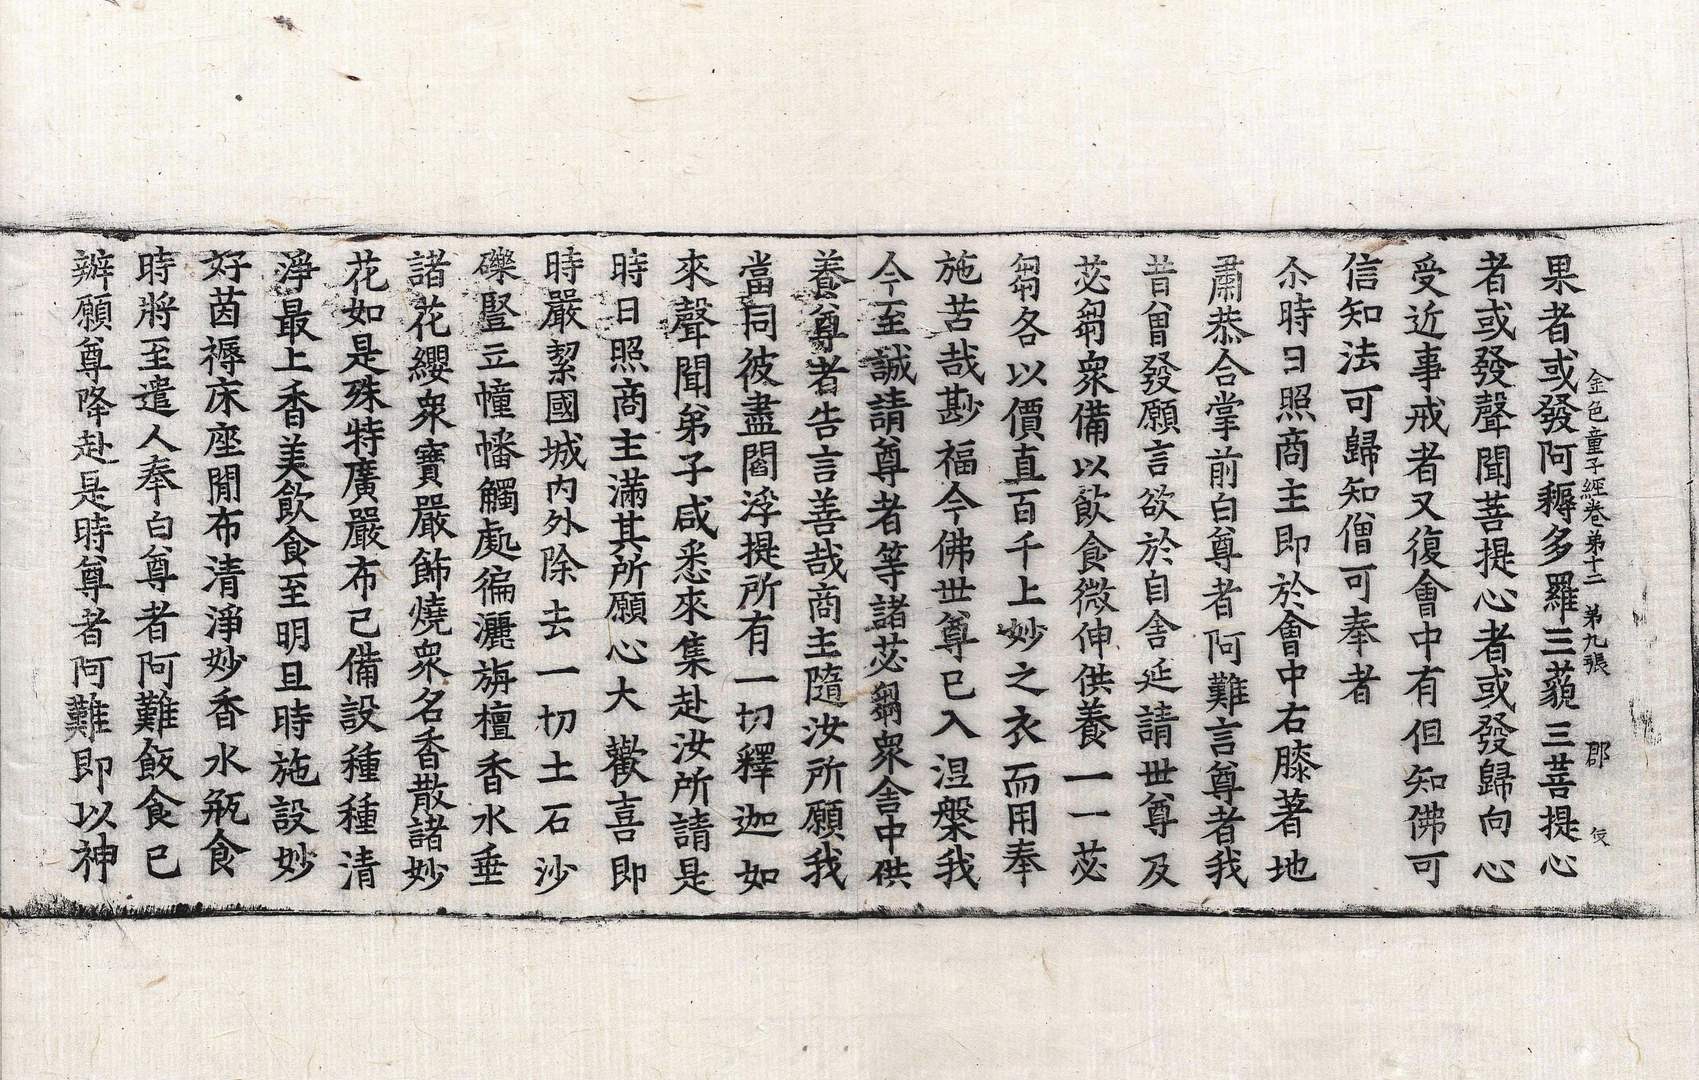 金色童子經卷第十二 第九張 郡 佊
果者或發阿耨多羅三藐三菩提心
者或發聲聞菩提心者或發歸向心
受近事戒者又復會中有但知佛可
信知法可歸知僧可奉者
尒時日照商主即於會中右膝著地
肅恭合掌前白尊者阿難言尊者我
昔曾發願言欲於自舍延請世尊及
苾芻衆備以飲食微伸供養一一苾
芻各以價直百千上妙之衣而用奉
施苦哉尠福今佛世尊已入涅槃我
今至誠請尊者等諸苾芻衆舍中供
養尊者告言善哉商主隨汝所願我
當同彼盡閻浮提所有一切釋迦如
來聲聞弟子咸悉來集赴汝所請是
時日照商主滿其所願心大歡喜即
時嚴絜國城內外除去一切土石沙
礫豎立幢幡觸處徧灑旃檀香水垂
諸花纓衆寶嚴飾燒衆名香散諸妙
花如是殊特廣嚴布已備設種種清
淨最上香美飲食至明旦時施設妙
好茵褥床座閒布清淨妙香水瓶食
時將至遣人奉白尊者阿難飯食已
辦願尊降赴是時尊者阿難即以神